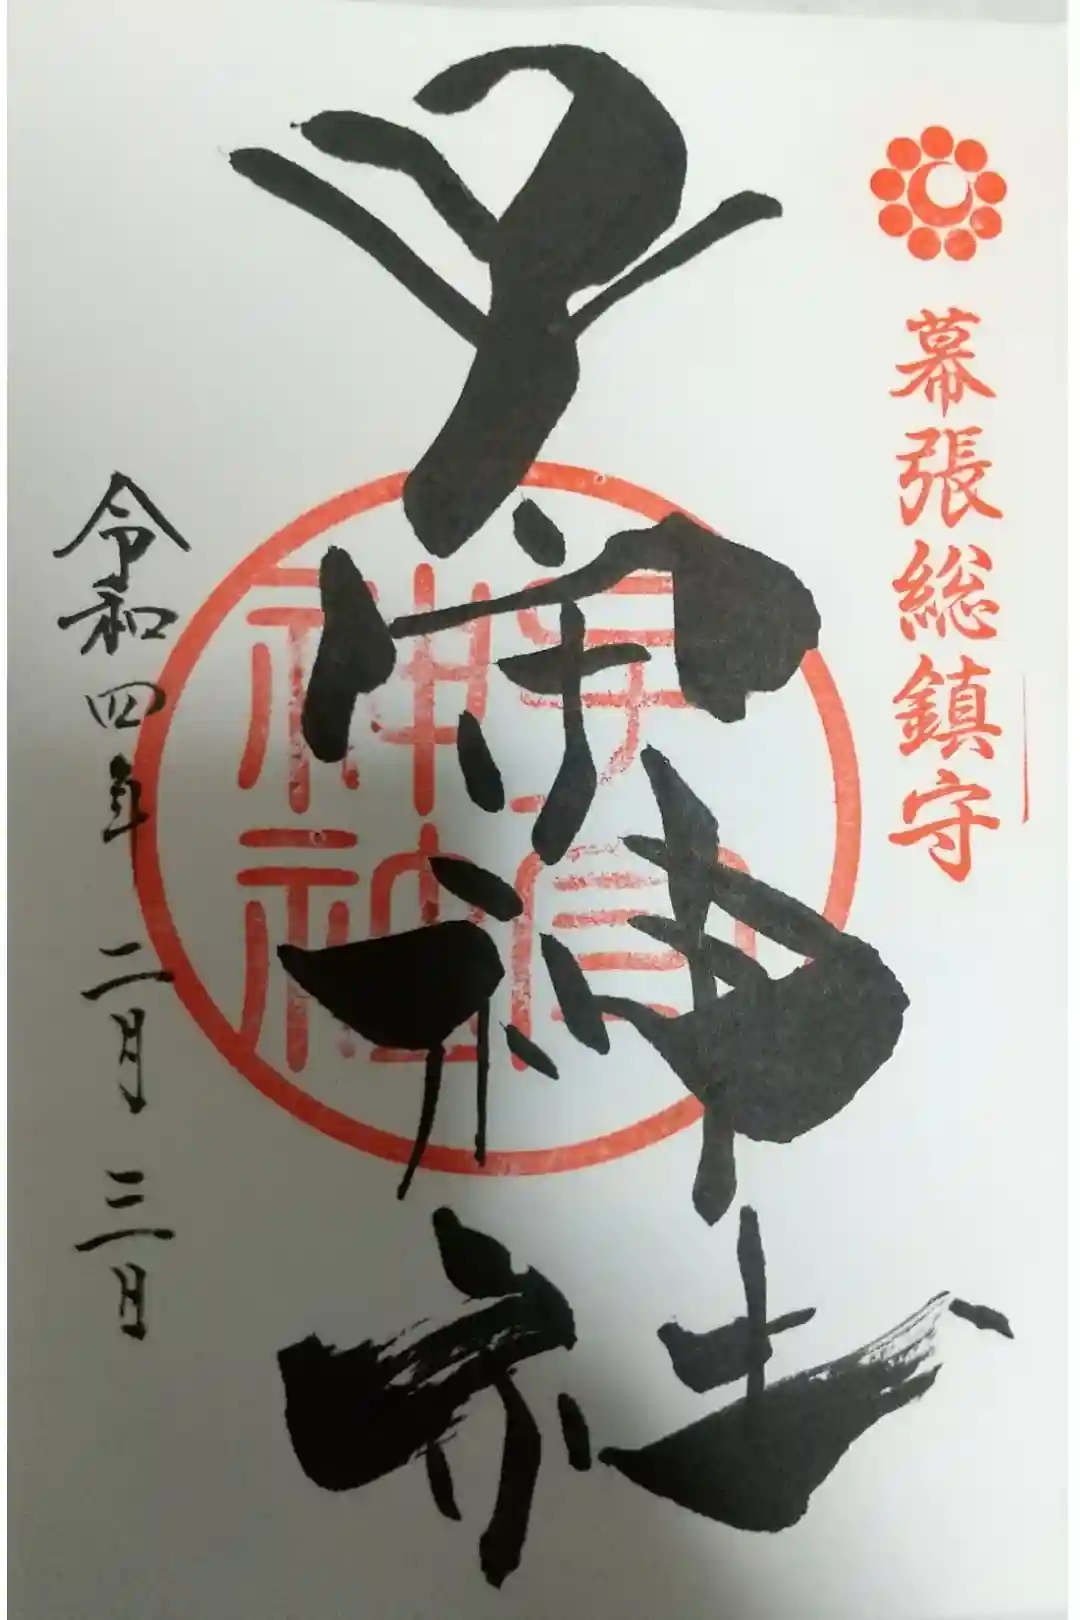 幕張総鎮守
子守神社
子守神社
令和四年二月三日